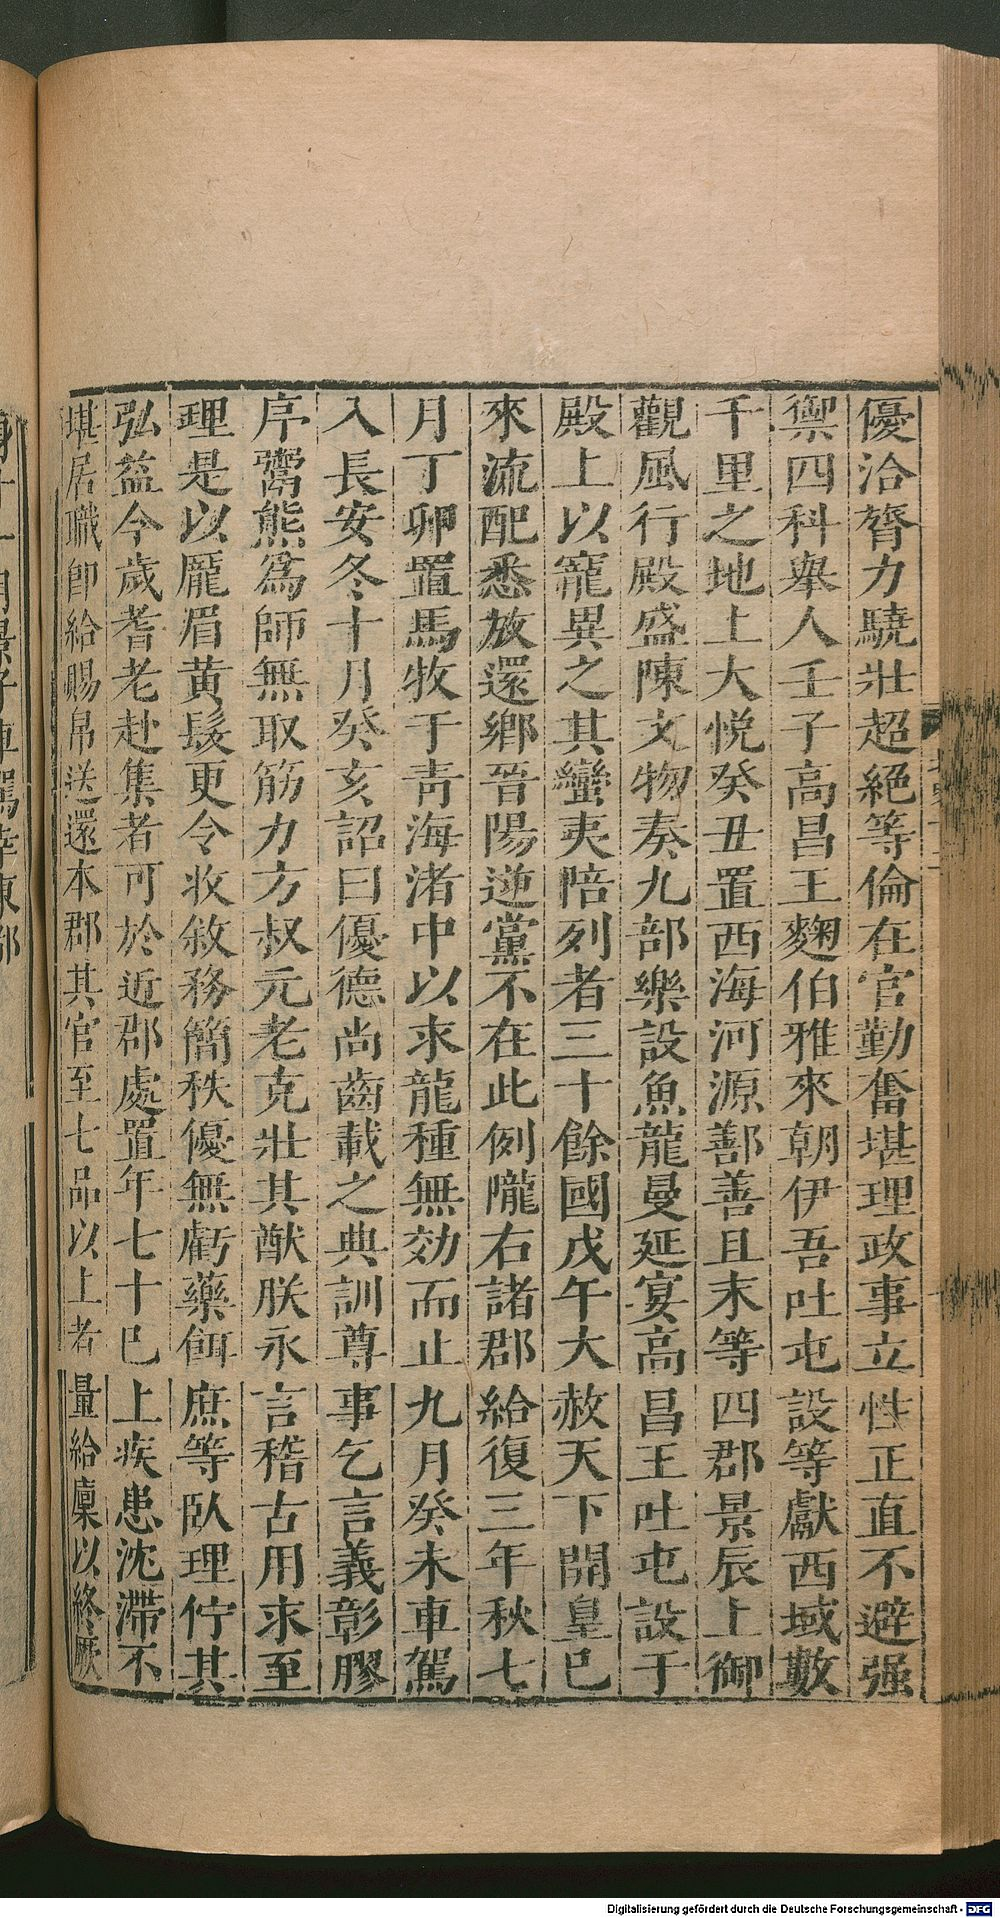 優洽膂力驍壯超絕等倫在官勤奮堪理政事立性正直不避强
禦四科舉人壬子高昌王麴伯雅來朝伊吾吐屯設等獻西域數
千里之地上大悅癸丑置西海河源鄯善且末等四郡景辰上御
觀風行殿盛陳文物奏九部樂設魚龍曼延宴高昌王吐屯設于
殿上以寵異之其蠻夷陪列者三十餘國戊午大赦天下開皇已
來流配悉放還鄉晉陽逆黨不在此例隴右諸郡給復三年秋七
月丁卯置馬牧于青海渚中以求龍種無効而止九月癸未車駕
入長安冬十月癸亥詔曰優德尚齒載之典訓尊事乞言義彰膠
序鬻熊爲師無取筋力方叔元老克壯其猷朕永言稽古用求至
理是以厖眉黃髮更令收敘務簡秩優無虧藥餌庶等臥理佇其
弘益今歲耆老赴集者可於近郡處置年七十已上疾患沈滯不
堪居職即給賜帛送還本郡其官至七品以上者量給廩以終厥
Digitalisierung gefördert durch die Deutsche Forschungsgemeinschaft - DFG